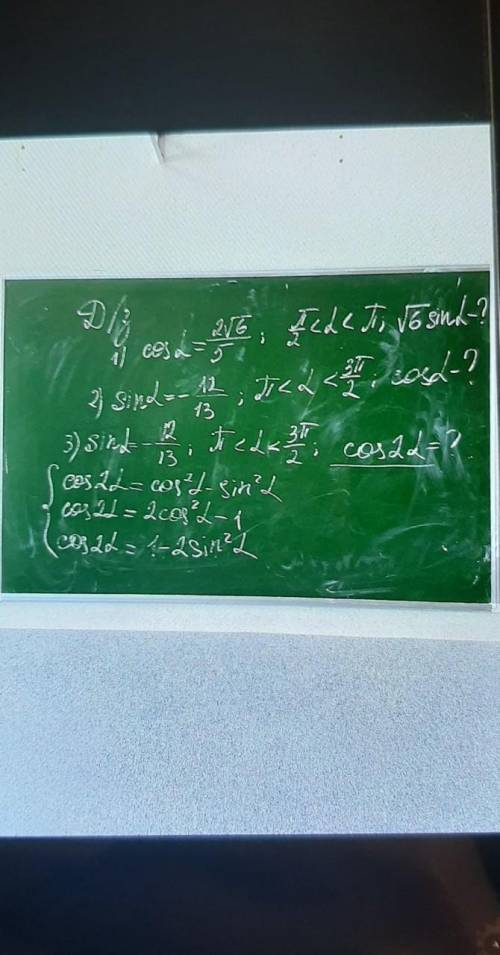 Д/з
1) cosα = 2√6/5 ; π/2 < α < π, √6 sinα - ?
2) sinα = -12/13 ; π < α < 3π/2 ; cosα - ?
3) sinα = -12/13 ; π < α < 3π/2 ; cos2α = ?
cos2α = cos²α - sin²α
cos2α = 2cos²α - 1
cos2α = 1 - 2sin²α